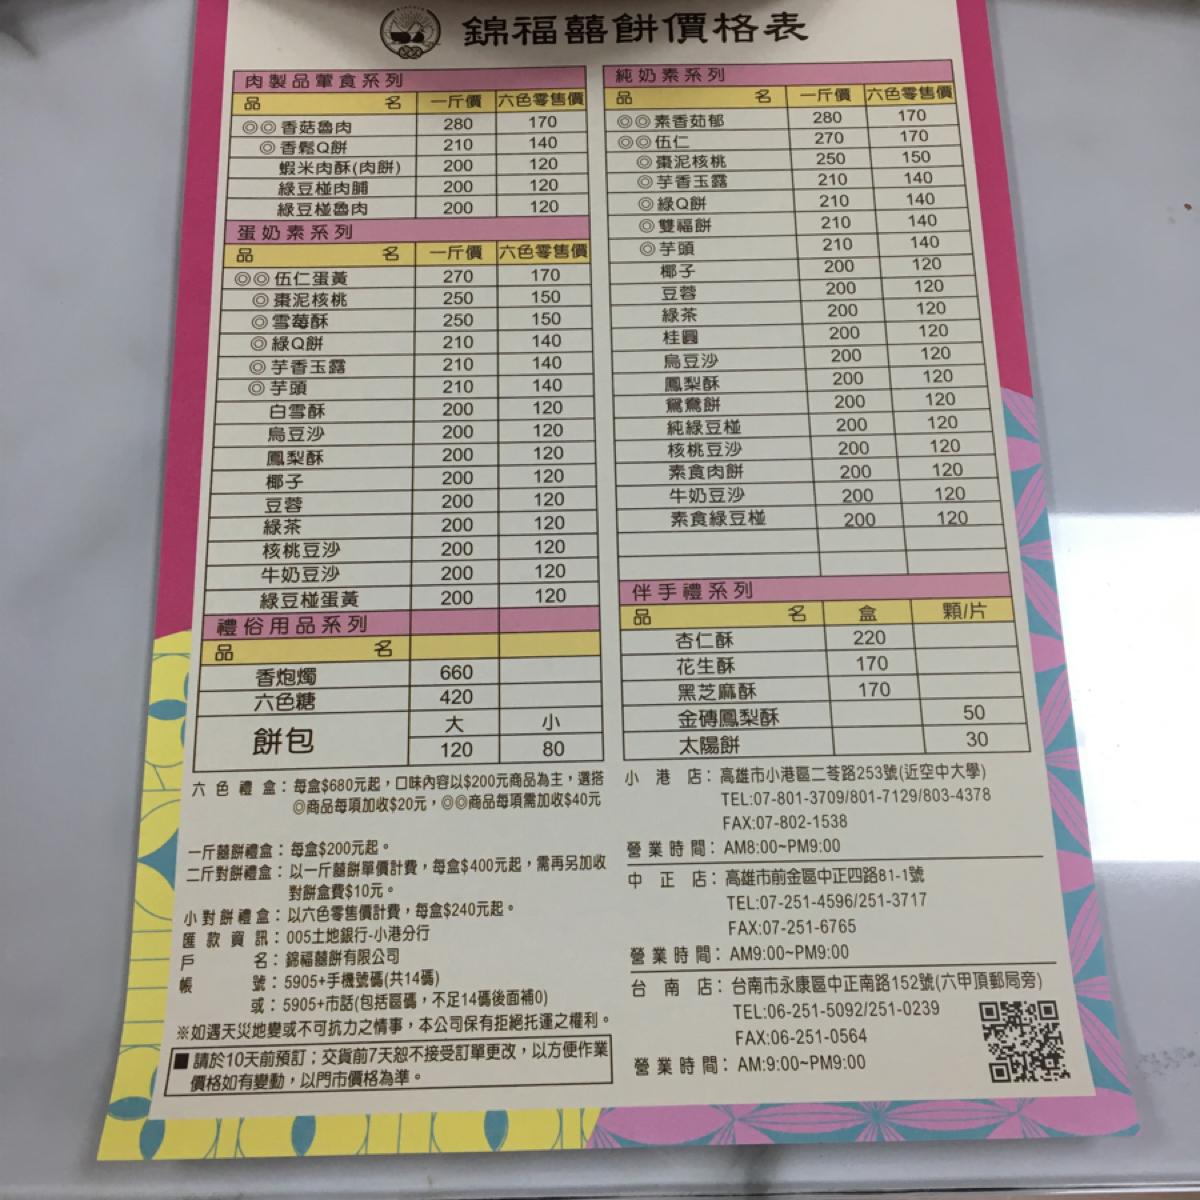 錦福囍餅價格表
肉製品葷食系列
品名 一斤價 六色零售價
◎◎香菇魯肉 280 170
◎香鬆Q餅 210 140
蝦米肉酥(肉餅) 200 120
綠豆椪肉脯 200 120
綠豆椪魯肉 200 120
蛋奶素系列
品名 一斤價 六色零售價
◎◎伍仁蛋黃 270 170
◎棗泥核桃 250 150
◎雪莓酥 250 150
◎綠Q餅 210 140
◎芋香玉露 210 140
◎芋頭 210 140
白雪酥 200 120
烏豆沙 200 120
鳳梨酥 200 120
椰子 200 120
豆蓉 200 120
綠茶 200 120
核桃豆沙 200 120
牛奶豆沙 200 120
綠豆椪蛋黃 200 120
禮俗用品系列
品名
香炮燭 660
六色糖 420
餅包 大 小
120 80
純奶素系列
品名 一斤價 六色零售價
◎◎素香茹郁 280 170
◎◎伍仁 270 170
◎棗泥核桃 250 150
◎芋香玉露 210 140
◎綠Q餅 210 140
◎雙福餅 210 140
◎芋頭 210 140
椰子 200 120
豆蓉 200 120
綠茶 200 120
桂圓 200 120
烏豆沙 200 120
鳳梨酥 200 120
鴛鴦餅 200 120
純綠豆椪 200 120
核桃豆沙 200 120
素食肉餅 200 120
牛奶豆沙 200 120
素食綠豆椪 200 120
伴手禮系列
品名 盒 顆/片
杏仁酥 220
花生酥 170
黑芝麻酥 170
金磚鳳梨酥 50
太陽餅 30
六色禮盒：每盒$680元起，口味內容以$200元商品為主，選搭
◎商品每項加收$20元，◎◎商品每項需加收$40元
一斤囍餅禮盒：每盒$200元起。
二斤對餅禮盒：以一斤囍餅單價計費，每盒$400元起，需再另加收
對餅盒費$10元。
小對餅禮盒：以六色零售價計費，每盒$240元起。
匯款資訊：005土地銀行-小港分行
戶名：錦福囍餅有限公司
帳號：5905+手機號碼(共14碼)
或：5905+市話(包括區碼，不足14碼後面補0)
※如遇天災地變或不可抗力之情事，本公司保有拒絕托運之權利。
■請於10天前預訂；交貨前7天恕不接受訂單更改，以方便作業
價格如有變動，以門市價格為準。
小港店：高雄市小港區二苓路253號(近空中大學)
TEL:07-801-3709/801-7129/803-4378
FAX:07-802-1538
營業時間：AM8:00~PM9:00
中正店：高雄市前金區中正四路81-1號
TEL:07-251-4596/251-3717
FAX:07-251-6765
營業時間：AM9:00~PM9:00
台南店：台南市永康區中正南路152號(六甲頂郵局旁)
TEL:06-251-5092/251-0239
FAX:06-251-0564
營業時間：AM:9:00~PM9:00